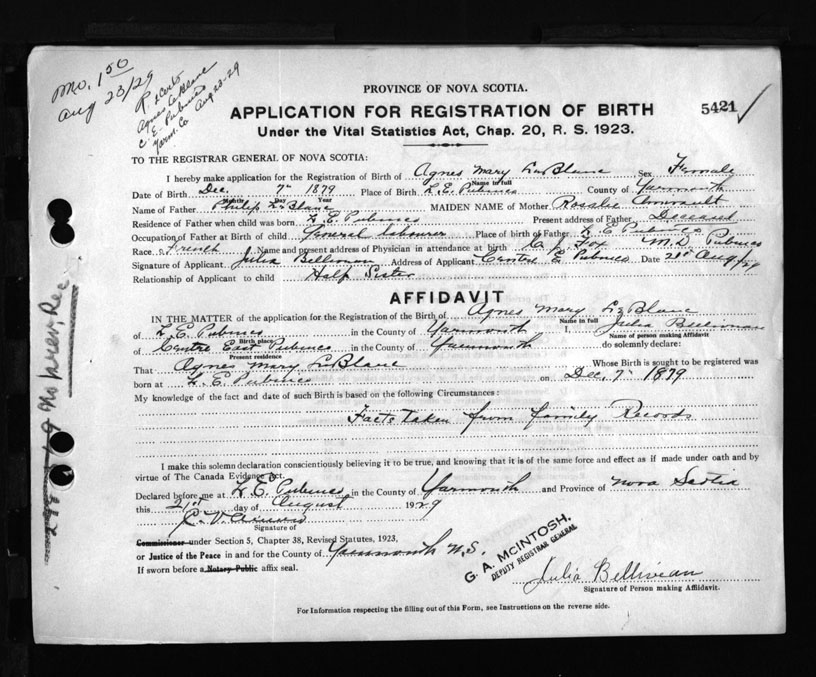 Mo. 1 50
Aug 23/29
Agnes LeBlanc
C. E. Pubnico
Yarm. Co Aug 23-29
PROVINCE OF NOVA SCOTIA.
APPLICATION FOR REGISTRATION OF BIRTH
5421
Under the Vital Statistics Act, Chap. 20, R. S. 1923.
TO THE REGISTRAR GENERAL OF NOVA SCOTIA:
I hereby make application for the Registration of Birth of Agnes Mary LeBlanc Sex Female
Name in full
Date of Birth Dec. 7th 1879 Place of Birth L. E. Pubnico County of Yarmouth
Month Day Year
Name of Father Philip LeBlanc MAIDEN NAME of Mother Rosalie Amirault
Residence of Father when child was born L. E. Pubnico Present address of Father Deceased
Occupation of Father at Birth of child General labourer Place of birth of Father L E Pubnico
Race French Name and present address of Physician in attendance at birth C. J. Fox M.D. Pubnico
Signature of Applicant Julia Belliveau Address of Applicant Centre E Pubnico Date 21st Aug/29
Relationship of Applicant to child Half Sister
AFFIDAVIT
IN THE MATTER of the application for the Registration of the Birth of Agnes Mary LeBlanc
Name in full
of L. E. Pubnico in the County of Yarmouth I, Julia Belliveau
Birth place Name of person making Affidavit
of Centre East Pubnico in the County of Yarmouth do solemnly declare:
Present residence
That Agnes Mary LeBlanc Whose Birth is sought to be registered was
born at L. E. Pubnico on Dec, 7th 1879
My knowledge of the fact and date of such Birth is based on the following Circumstances:
Facts taken from family Records
I make this solemn declaration conscientiously believing it to be true, and knowing that it is of the same force and effect as if made under oath and by
virtue of The Canada Evidence Act.
Declared before me at L. E. Pubnico in the County of Yarmouth and Province of Nova Scotia
this 21st day of August 1929
Signature of
Commissioner under Section 5, Chapter 38, Revised Statutes, 1923,
or Justice of the Peace in and for the County of Yarmouth N.S.
If sworn before a Notary Public affix seal.
G. A. McINTOSH,
DEPUTY REGISTRAR GENERAL
Julia Belliveau
Signature of Person making Affidavit.
For Information respecting the filling out of this Form, see Instructions on the reverse side.
No prev. Rec